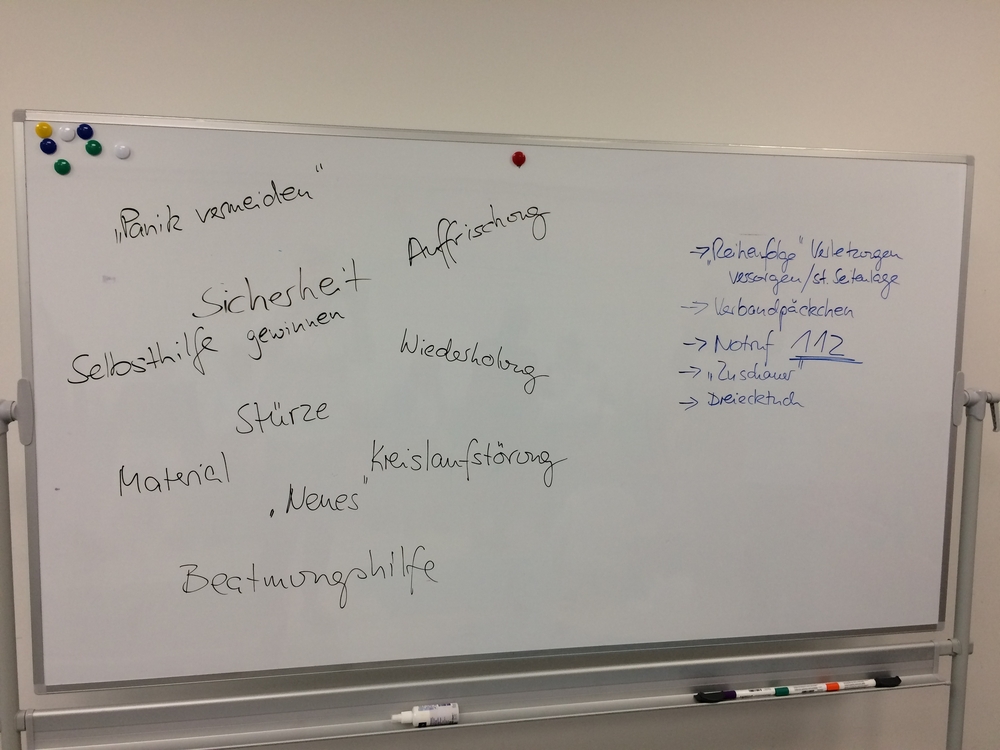 „Panik vermeiden"
Auffrischung
Sicherheit
gewinnen
Selbsthilfe
Wiederholung
Stürze
Kreislaufstörung
Material
„Neues"
Beatmungshilfe
→ „Reihenfolge" Verletzungen
versorgen/st. Seitenlage
→ Verbandpäckchen
→ Notruf 112
→ „Zuschauer"
→ Dreiecktuch